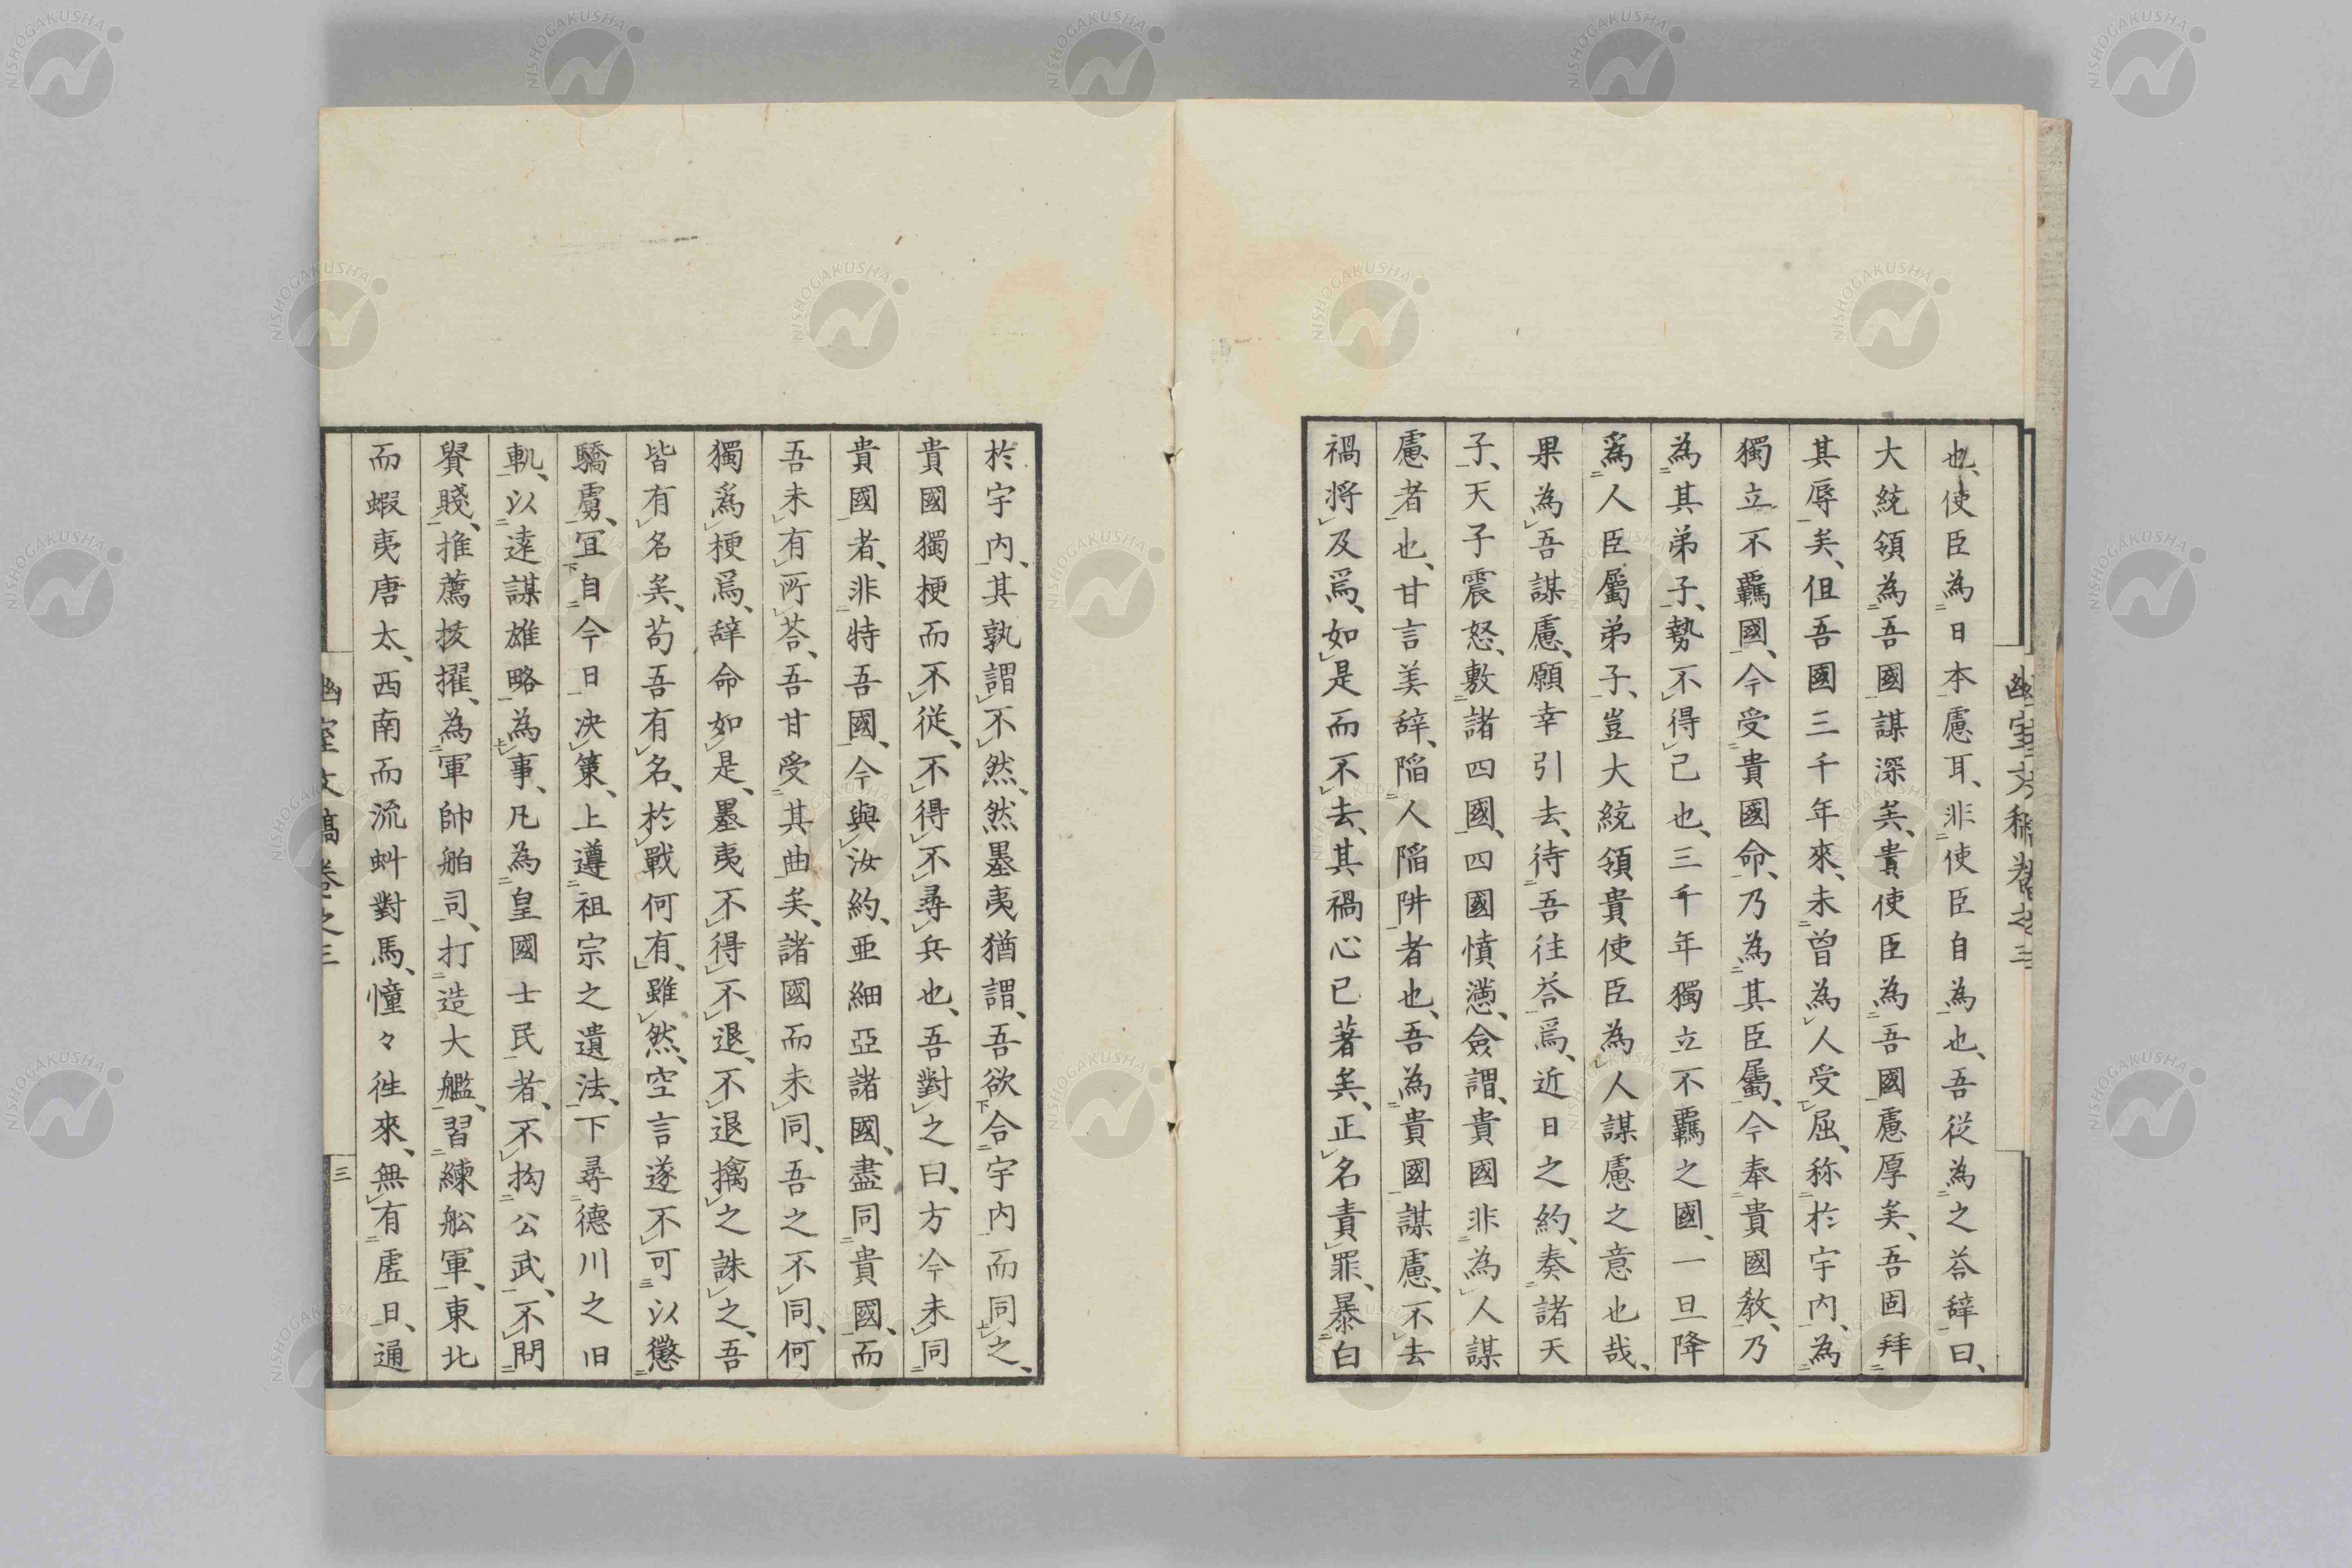 幽室文稿卷之三
也、使臣為日本慮耳、非使臣自為也、吾従為之荅辞曰、
大統領為吾國謀深矣、貴使臣為吾國慮厚矣、吾固拜
其辱矣、但吾國三千年來、未曾為人受屈、称於宇内、為
獨立不羈國、今受貴國命、乃為其臣屬、今奉貴國教、乃
為其弟子、勢不得已也、三千年獨立不羈之國、一旦降
爲人臣屬弟子、豈大統領貴使臣為人謀慮之意也哉、
果為吾謀慮、願幸引去、待吾往荅焉、近日之約、奏諸天
子、天子震怒、敷諸四國、四國憤懣、僉謂、貴國非為人謀
慮者也、甘言美辞、陥人陥阱者也、吾為貴國謀慮、不去
禍将及焉、如是而不去、其禍心已著矣、正名責罪、暴白
於宇内、其孰謂不然、然墨夷猶謂、吾欲合宇内而同之、
貴國獨梗而不従、不得不尋兵也、吾對之曰、方今未同
貴國者、非特吾國、今與汝約、亜細亞諸國、盡同貴國、而
吾未有所荅、吾甘受其曲矣、諸國而未同、吾之不同、何
獨爲梗焉、辞命如是、墨夷不得不退、不退擒之誅之、吾
皆有名矣、苟吾有名、於戰何有、雖然、空言遂不可以懲
驕虜、宜自今日決策、上遵祖宗之遺法、下尋德川之旧
軌、以遠謀雄略為事、凡為皇國士民者、不拘公武、不問
貴賤、推薦抜擢、為軍帥舶司、打造大艦、習練舩軍、東北
而蝦夷唐太、西南而流虬對馬、憧々往來、無有虚日、通
幽室文稿卷之三
三
NISHOGAKUSHA